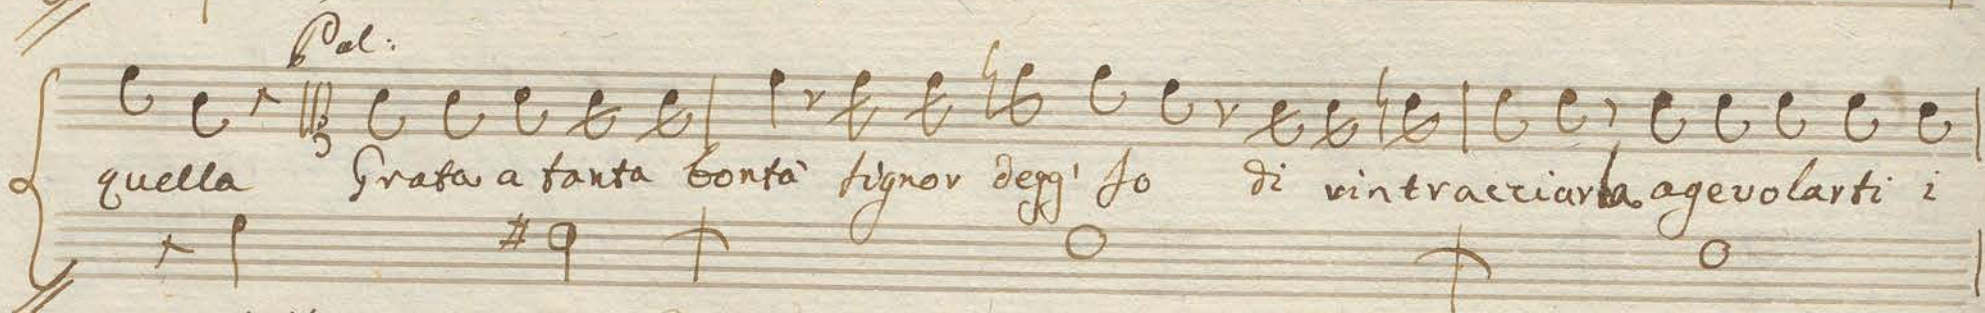 Pal:
quella Grata a tanta bontà signor degg' Io di rintracciarla agevolarti i